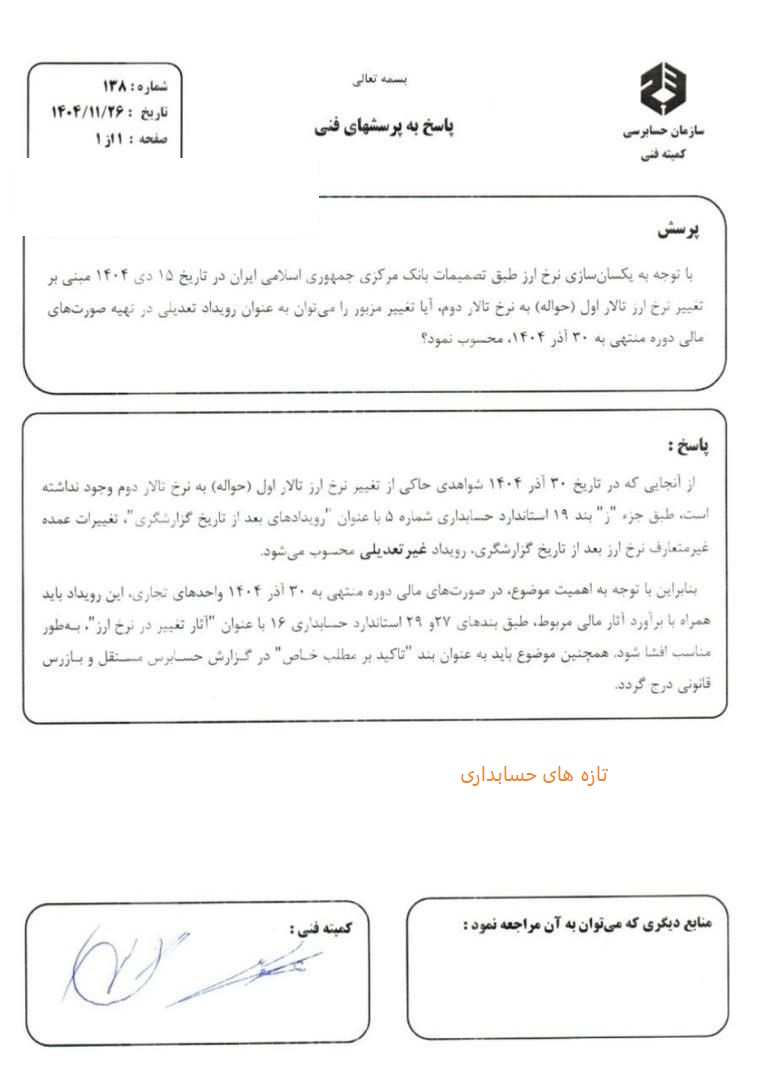 بسمه تعالی
پاسخ به پرسشهای فنی
سازمان حسابرسی
کمیته فنی
شماره : ۱۳۸
تاریخ : ۱۴۰۴/۱۱/۲۶
صفحه : ۱ از ۱
پرسش
با توجه به یکسان‌سازی نرخ ارز طبق تصمیمات بانک مرکزی جمهوری اسلامی ایران در تاریخ ۱۵ دی ۱۴۰۴ مبنی بر
تغییر نرخ ارز تالار اول (حواله) به نرخ تالار دوم، آیا تغییر مزبور را می‌توان به عنوان رویداد تعدیلی در تهیه صورت‌های
مالی دوره منتهی به ۳۰ آذر ۱۴۰۴، محسوب نمود؟
پاسخ :
از آنجایی که در تاریخ ۳۰ آذر ۱۴۰۴ شواهدی حاکی از تغییر نرخ ارز تالار اول (حواله) به نرخ تالار دوم وجود نداشته
است، طبق جزء "ز" بند ۱۹ استاندارد حسابداری شماره ۵ با عنوان "رویدادهای بعد از تاریخ گزارشگری"، تغییرات عمده
غیرمتعارف نرخ ارز بعد از تاریخ گزارشگری، رویداد غیرتعدیلی محسوب می‌شود.
بنابراین با توجه به اهمیت موضوع، در صورت‌های مالی دوره منتهی به ۳۰ آذر ۱۴۰۴ واحدهای تجاری، این رویداد باید
همراه با برآورد آثار مالی مربوط، طبق بندهای ۲۷و ۲۹ استاندارد حسابداری ۱۶ با عنوان "آثار تغییر در نرخ ارز"، به‌طور
مناسب افشا شود. همچنین موضوع باید به عنوان بند "تاکید بر مطلب خاص" در گزارش حسابرس مستقل و بازرس
قانونی درج گردد.
تازه های حسابداری
منابع دیگری که می‌توان به آن مراجعه نمود :
کمیته فنی :